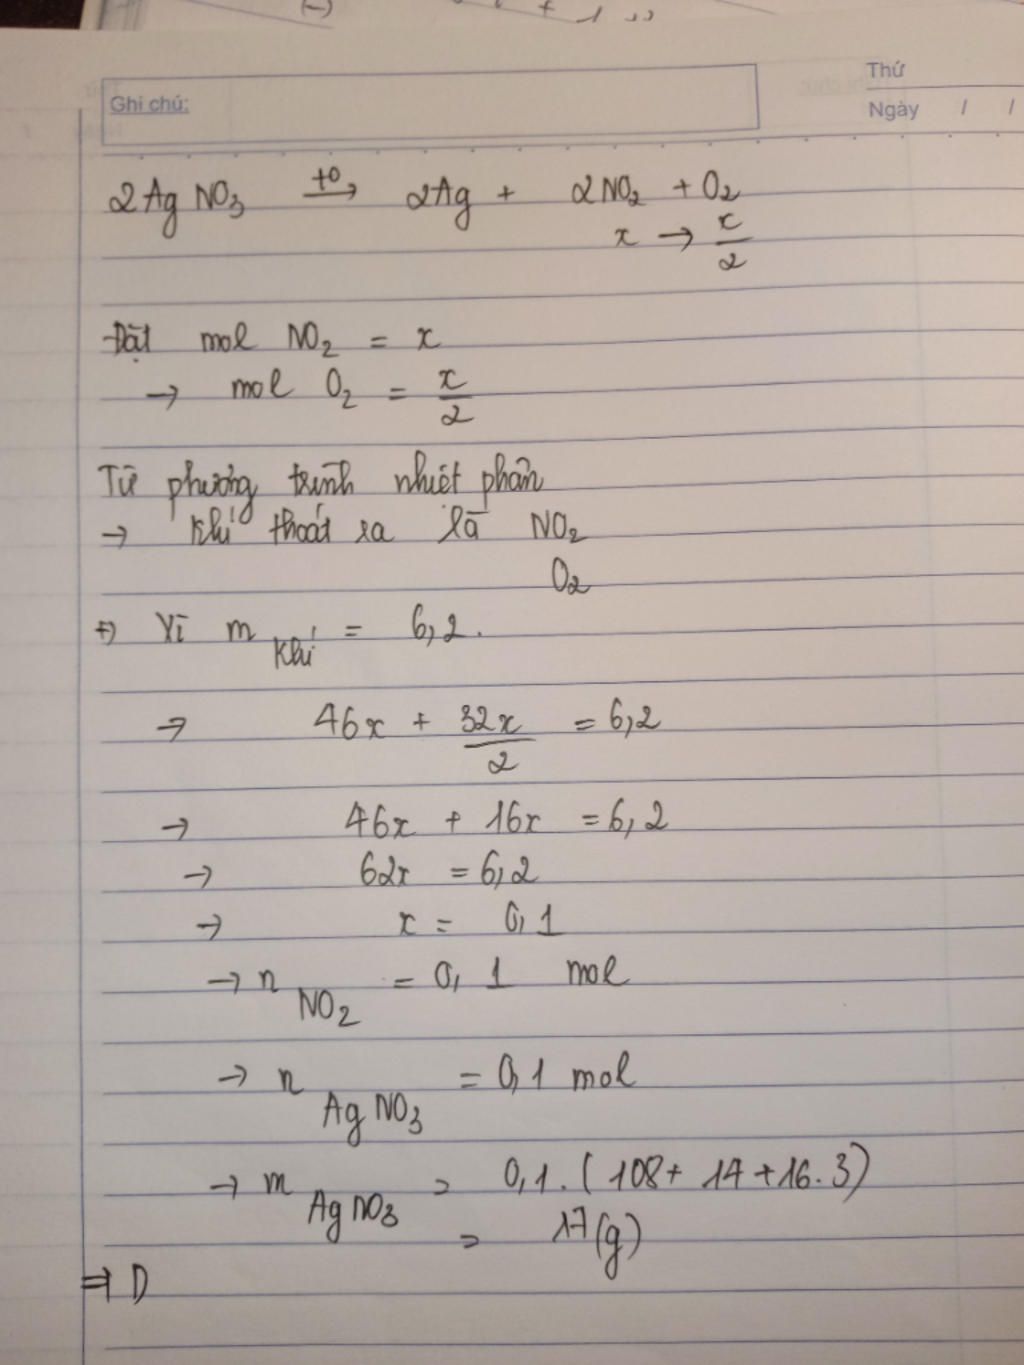 Thứ
Ghi chú:
Ngày / /
2AgNO3 +o→ 2Ag + 2NO2 + O2
x → x/2
Đặt mol NO2 = x
→ mol O2 = x/2
Từ phương trình nhiệt phân
→ khí thoát ra là NO2
O2
=) Vì m khí = 6,2.
→ 46x + 32x/2 = 6,2
→ 46x + 16x = 6,2
→ 62x = 6,2
→ x = 0,1
→ n NO2 = 0,1 mol
→ n AgNO3 = 0,1 mol
→ m AgNO3 = 0,1.(108+ 14+16.3)
= 17(g)
⇒ D